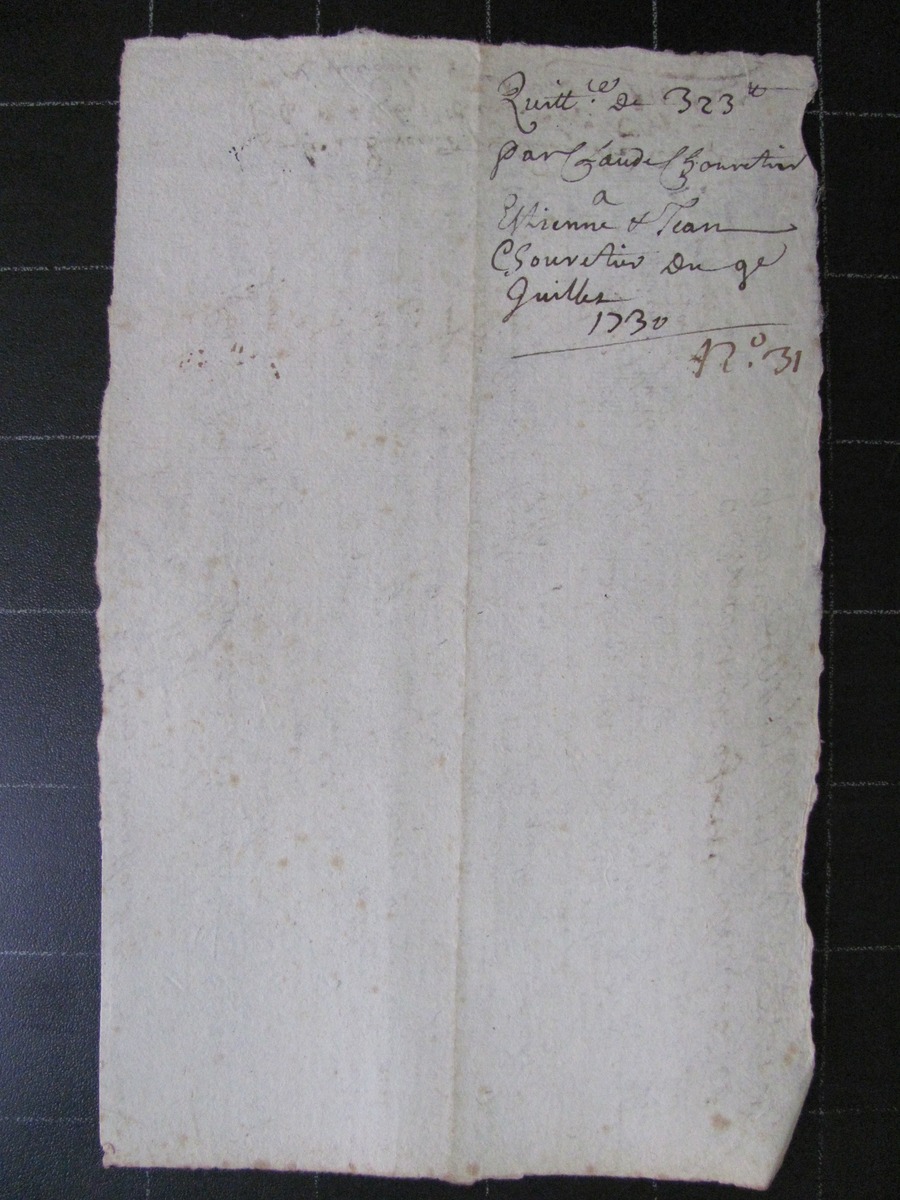 Quitt.ce de 323 tt
par Claude Chouvetier
a
Estienne & Jean
Chouvetier du 9e
Juillet
1730
N.o 31